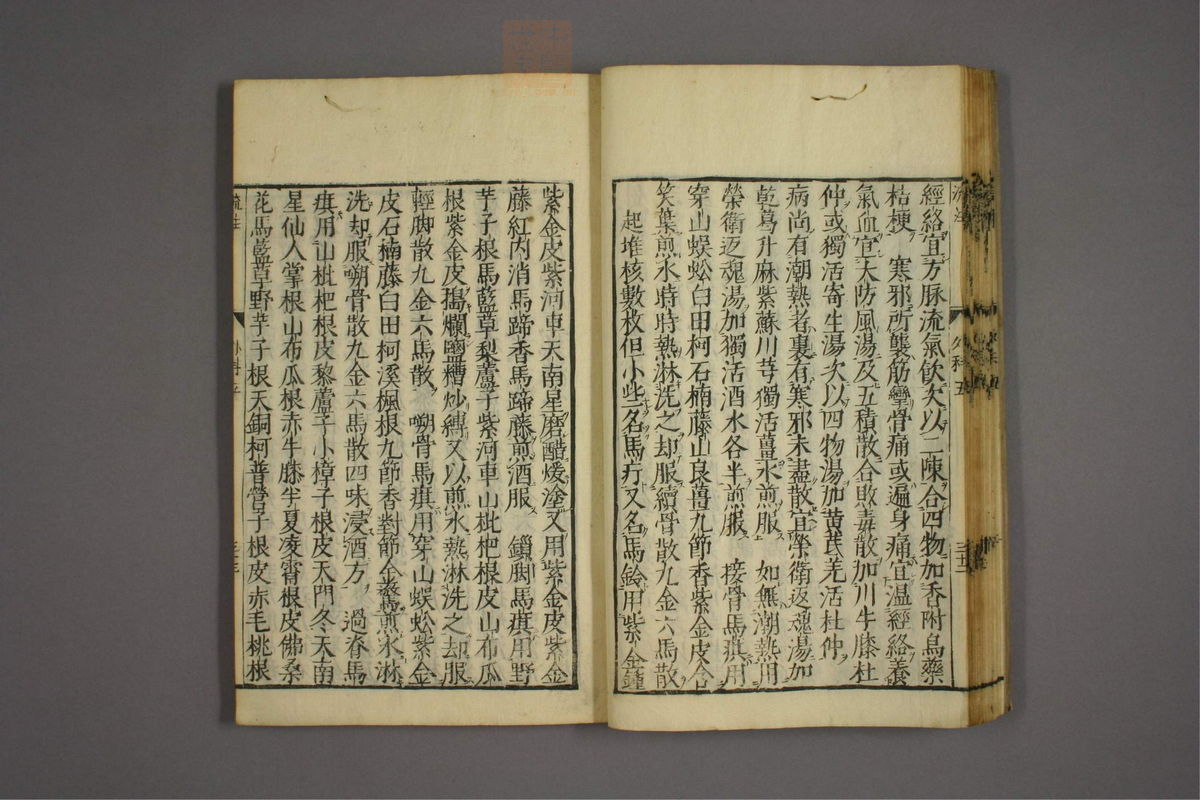 經絡宜方脉流氣飲次以二陳合四物加香附烏藥
桔梗　寒邪所襲筋攣骨痛或遍身痛宜温經絡養
氣血宜大防風湯及五積散合敗毒散加川牛膝杜
仲或獨活寄生湯次以四物湯加黄芪羌活杜仲
病尚有潮熱者裏有寒邪未盡散宜榮衛返魂湯加
乾葛升麻紫蘇川芎獨活薑水煎服　如無潮熱用
榮衛返魂湯加獨活酒水各半煎服　接骨馬旗用
穿山蜈蚣白田柯石楠藤山良薑九節香紫金皮合
笑葉煎水時時熱淋洗之却服續骨散九金六馬散
起堆核數枚但小些名馬疔又名馬鈴用紫金鐘
紫金皮紫河車天南星磨醋煖塗又用紫金皮紫金
藤紅内消馬蹄香馬蹄藤煎酒服　鎻脚馬旗用野
芋子根馬藍草梨蘆子紫河車山枇杷根皮山布瓜
根紫金皮搗爛鹽糟炒縛又以煎水熱淋洗之却服
輕脚散九金六馬散　嗍骨馬旗用穿山蜈蚣紫金
皮石楠藤白田柯溪楓根九節香對節金鶏煎水淋
洗却服嗍骨散九金六馬散四味浸酒方　過脊馬
旗用山枇杷根皮藜蘆子小樟子根皮天門冬天南
星仙人掌根山布瓜根赤牛膝半夏凌霄根皮佛桑
花馬藍草野芋子根天銅柯普營子根皮赤毛桃根